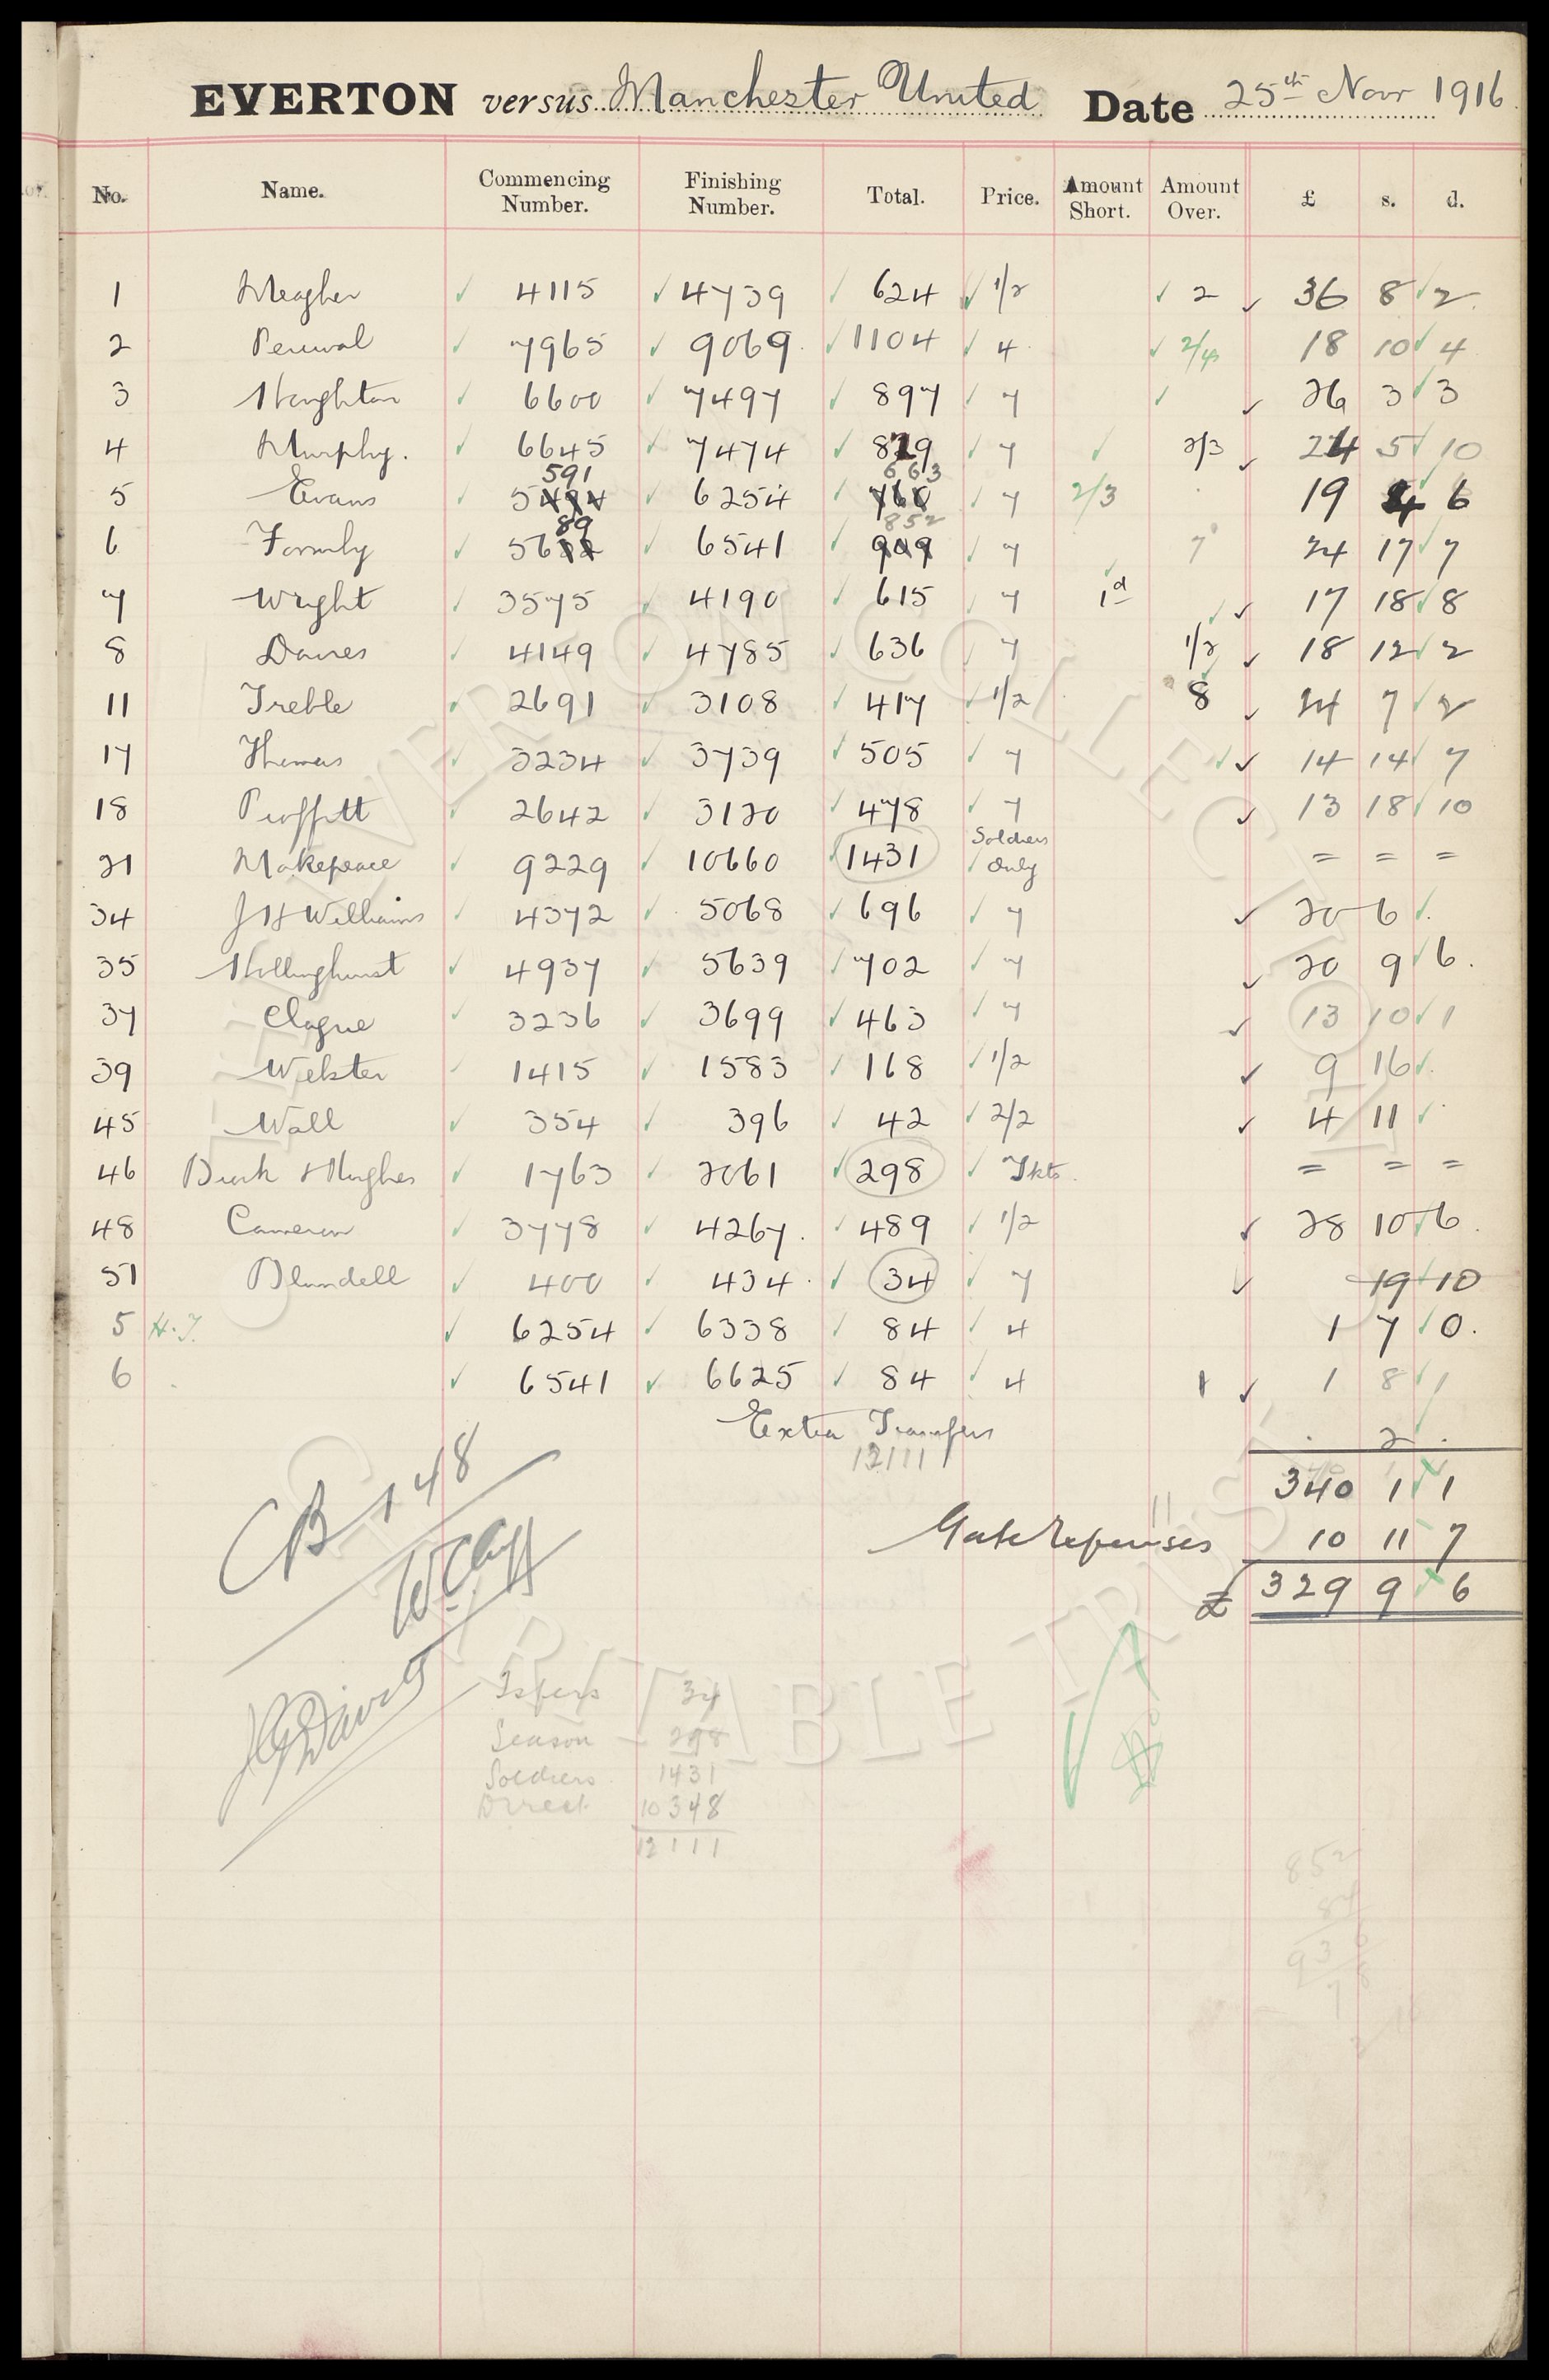 EVERTON versus Manchester United Date 25th Nov 1916
No. Name. Commencing Number. Finishing Number. Total. Price. Amount Short. Amount Over. £ s. d.
1 Meagher 4115 4739 624 1/2 2 36 8 2
2 Percival 7965 9069 1104 4 2/4 18 10 4
3 Houghton 6600 7497 897 7 26 3 3
4 Murphy. 6645 7474 829 7 2/3 24 5 10
5 Evans 5591 6254 663 7 2/3 19 4 6
6 Formby 5689 6541 852 7 7 24 17 7
7 Wright 3575 4190 615 7 1d 17 18 8
8 Davies 4149 4785 636 7 1/2 18 12 2
11 Treble 2691 3108 417 1/2 8 24 7 2
17 Thomas 3234 3739 505 7 14 14 7
18 Proffitt 2642 3120 478 7 13 18 10
21 Makepeace 9229 10660 1431 Soldiers Only = = =
34 J H Williams 4372 5068 696 7 20 6 .
35 Hollinghurst 4937 5639 702 7 20 9 6.
37 Clague 3236 3699 463 7 13 10 1
39 Webster 1415 1583 168 1/2 9 16 .
45 Wall 354 396 42 2/2 4 11 .
46 Hughes 1763 2061 298 Tkts. = = =
48 Cameron 3778 4267. 489 1/2 28 10 6.
51 Blundell 400 434. 34 7 19 10
5 H.T. 6254 6338 84 4 1 7 0.
6 . 6541 6625 84 4 1 1 8 1
Extra Transfers . 2 .
12111
340 1 1
Gate Expenses 10 11 7
£ 329 9 6
CB 148
Tsfers 34
Season 298
Soldiers 1431
Direct 10348
12111
852
84
936
EVERTON COLLECTION
CHARITABLE TRUST